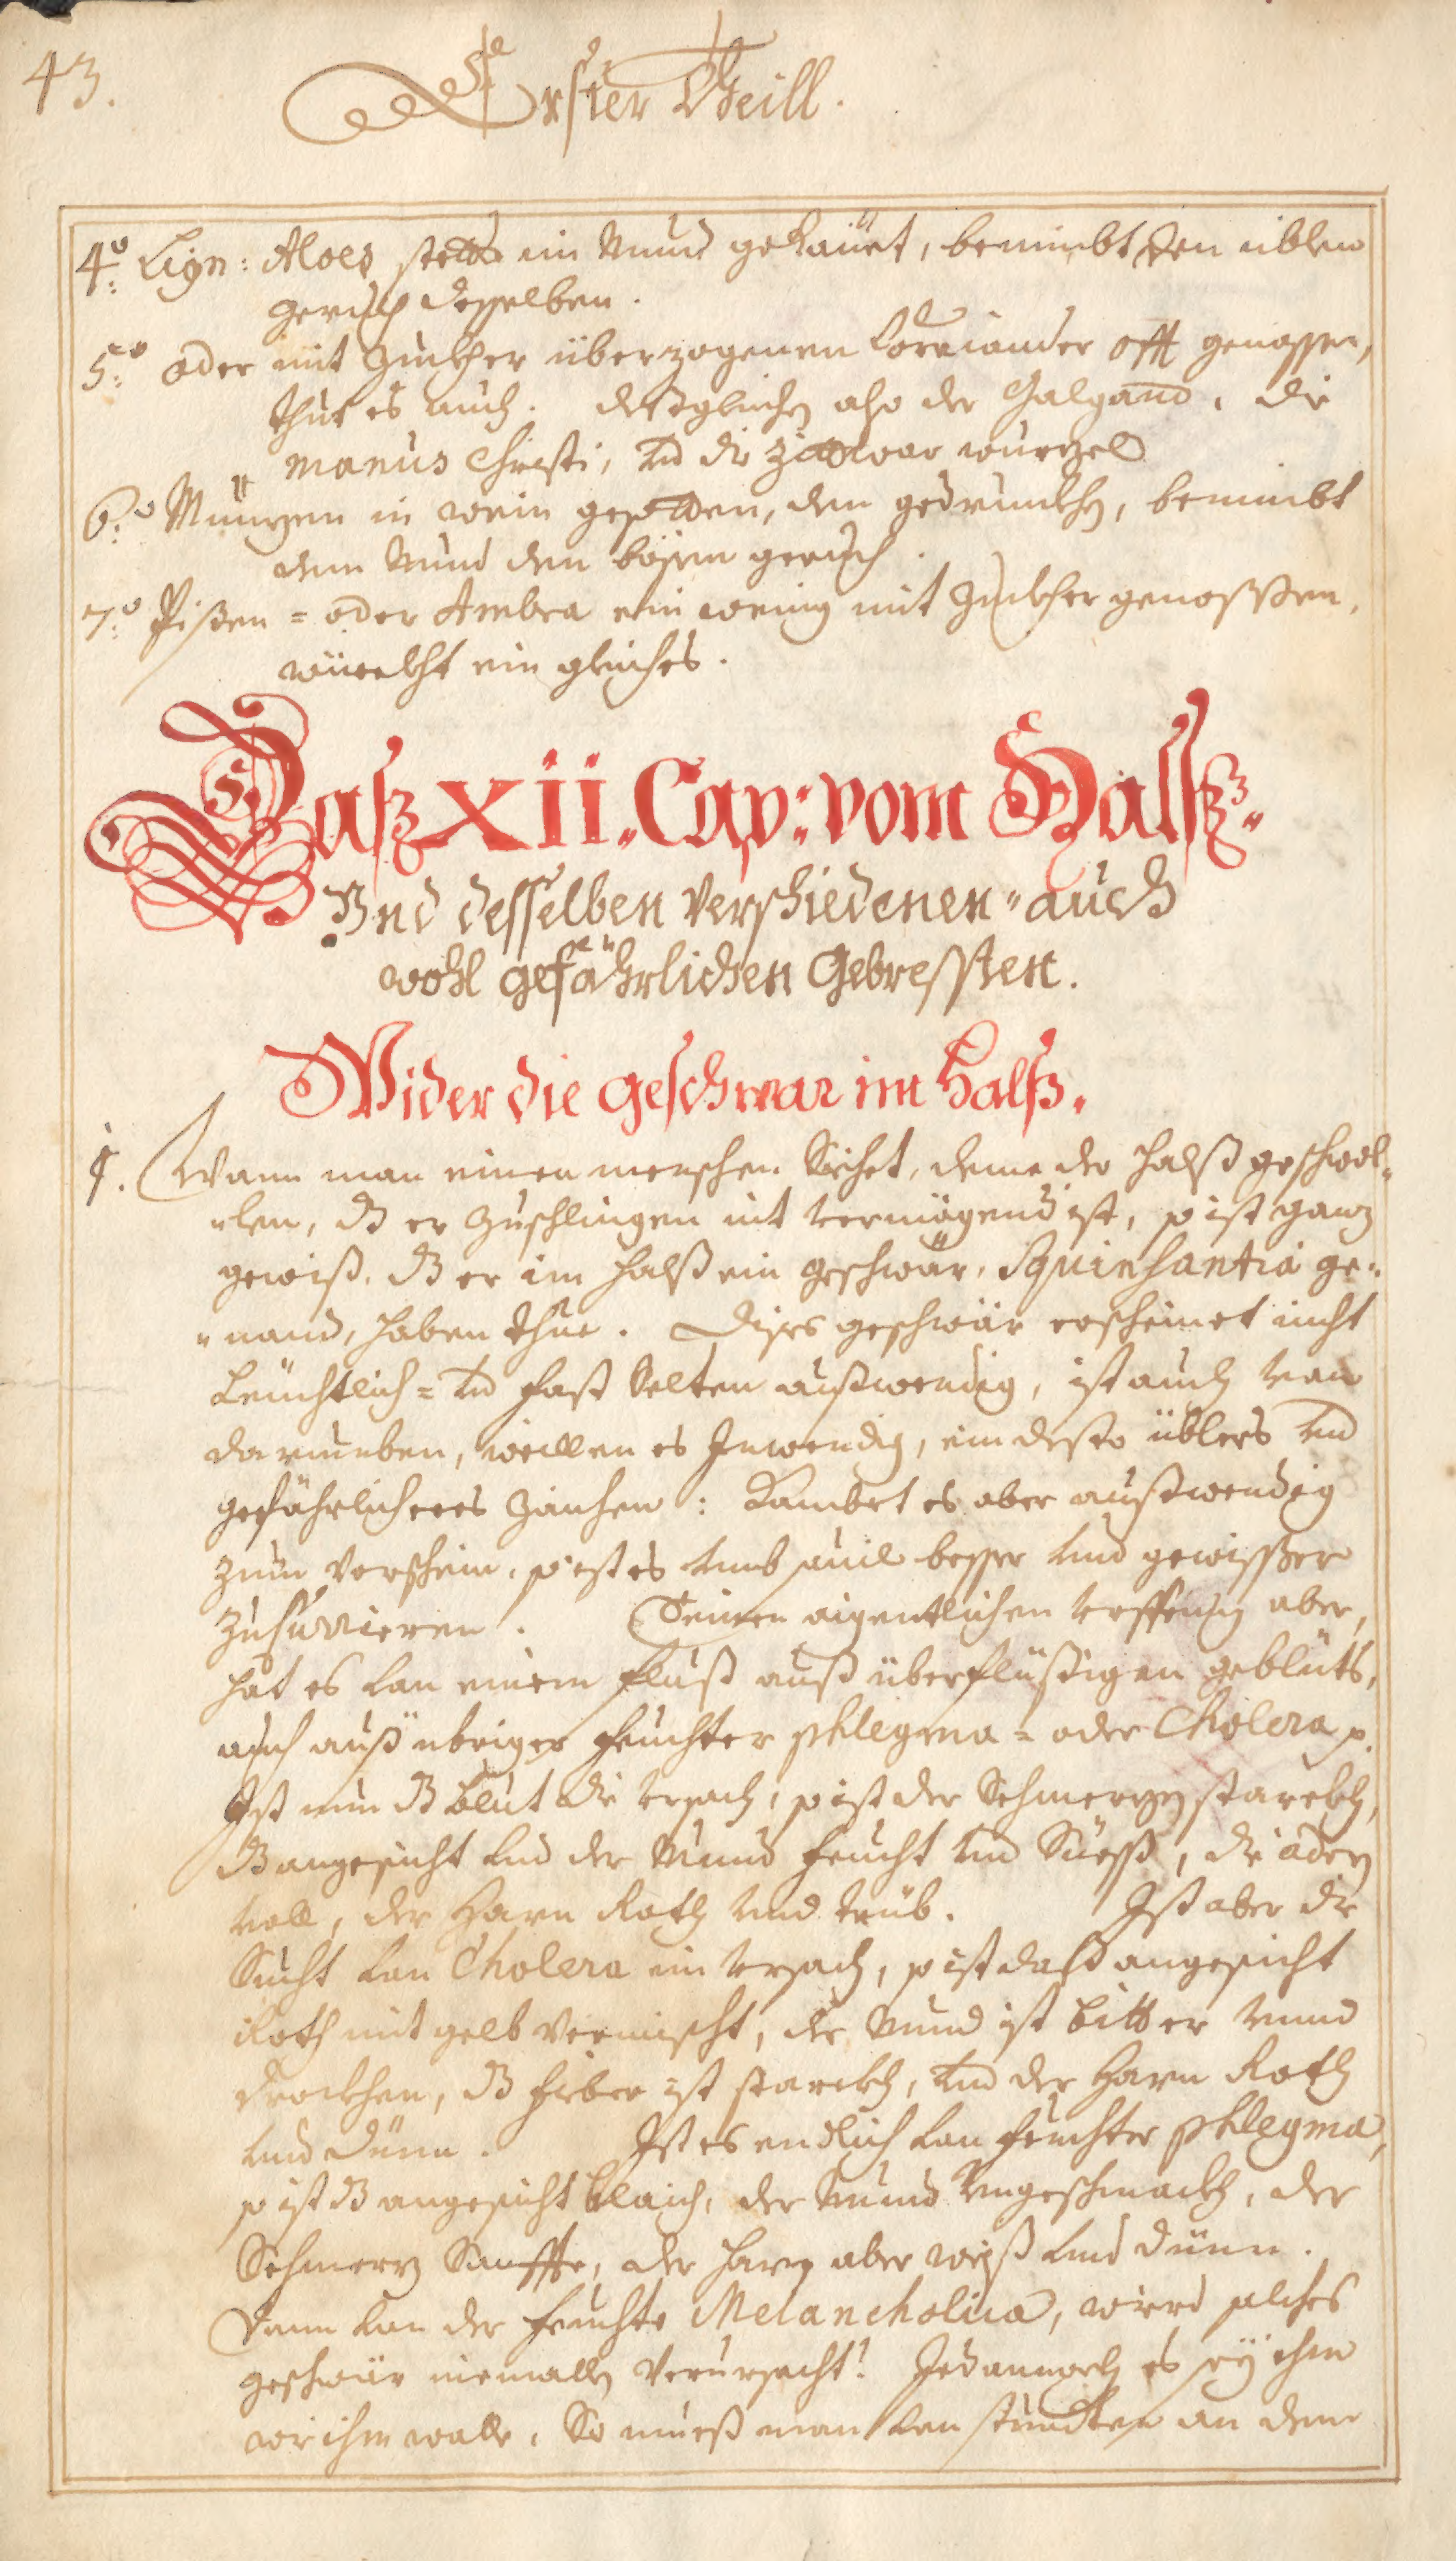 43.
Erster Theill.
4.º Lign: Aloes stetts im Mund gekäuet, benimbt den üblen
geruch desselben.
5.º oder mit Zuckher überzogenen Corriander offt genossen,
thut es auch. deßgleichen also der Galgand, die
manus Christi, vnd die Zittwar wurtzel
6.º Müntzen in wein gesotten, den gedrunckhen, benimbt
dem Mund den bösen geruch.
7.º Pißen = oder Ambra ein wenig mit Zuckher genossßen,
würckht ein gleiches.
Daß XII. Cap: vom Halß
Vnd desselben verschiedenen " auch
wohl gefährlichen Gebressten.
Wider die geschwar im Halß.
1. Wann man einen menschen Sichet, deme der halß geschwol=
=len, dß er zuschlingen nit vermögend ist, so ist ganz
gewiß, dß er im halß ein geschwär, Squinsantia ge=
=nand, haben thue. Dises geschwär erscheinet nicht
Leüchtlich = vnd fast Selten außwendig, ist auch von
darumben, weillen es Inwendig, ein desto üblers vnd
gefährlicheres Zaichen: Kombet es aber außwendig
zum Vorschein, so ist es vmb souil besser vnd gewisser
zu Curieren. Seinen aigentlichen vrsprung aber,
hat es von einem fluß auß überflüßigen geblüts,
auch auß übriger feuchter phlegma = oder Cholera p.
Ist nun dß blut die vrsach, so ist der Schmertzen starckh,
dß angesicht vnd der Mund feucht vnd Süeß, die adern
voll, der Harn Roth vnd trüb. Ist aber die
Sucht von Cholera ein vrsach, so ist daß angesicht
Roth mit gelb vermischt, der Mund ist bitter vnnd
trockhen, dß fieber ist starckh, vnd der Harn Roth
vnd dünn. Ist es endlich von feuchter phlegma,
so ist dß angesicht blaich, der Mund Vngeschmackh, der
Schmerz Sanffte, der harn aber weiß vnd dünn.
Dann von der feuchte Melancholica, wird solches
geschwär niemalls verursacht! Jedannoch es sey ihm
wie ihm wolle, So mueß man von stundten an dem